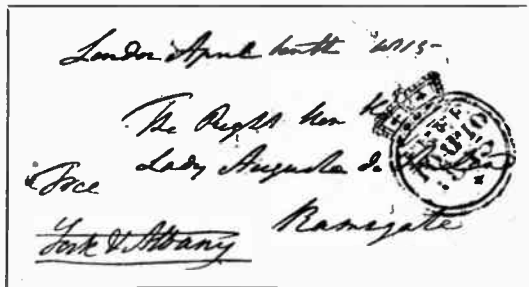 London April tenth 1815
The Right Hon
Lady Augusta de
Free
Ramsgate
York & Albany